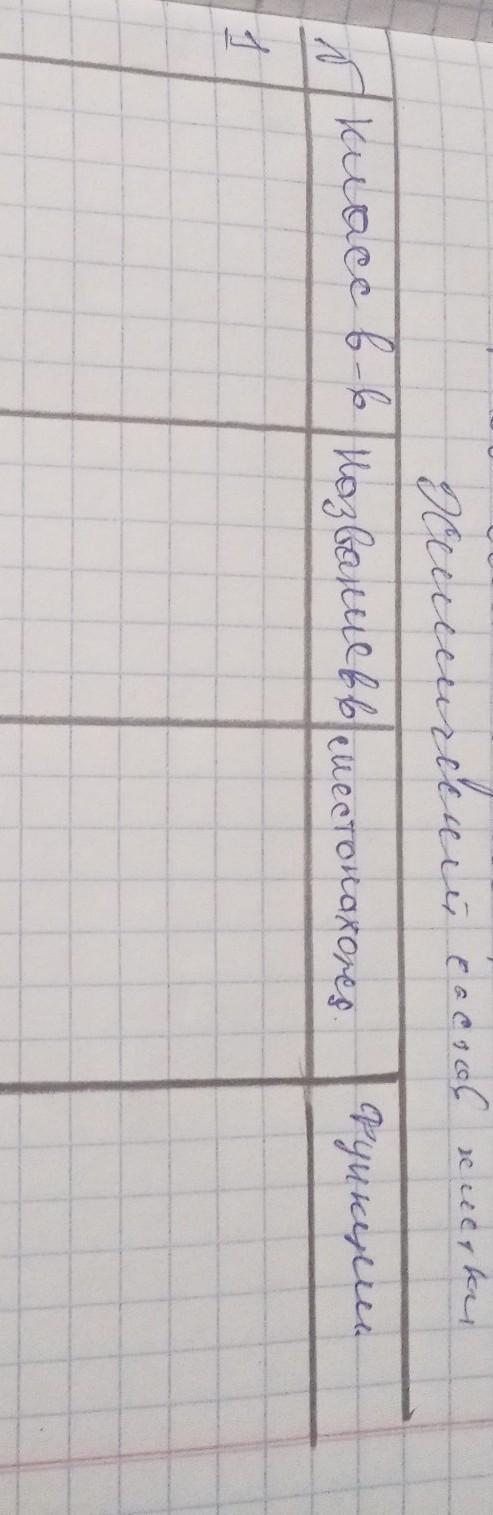 Химический состав клетки
№ Класс в-в Название в в местонахожд. Функции
1